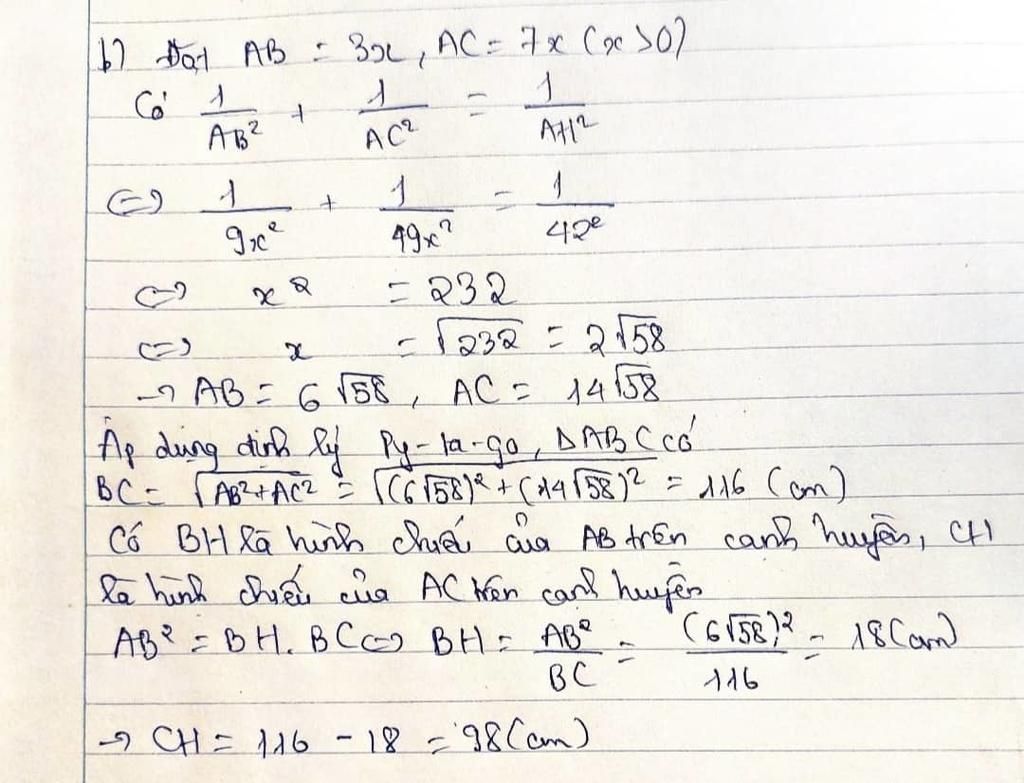 b) Đặt AB = 3x, AC = 7x (x>0)
Có 1/AB² + 1/AC² = 1/AH²
<=> 1/9x² + 1/49x² = 1/42²
<=> x² = 232
<=> x = √232 = 2√58
→ AB = 6√58, AC = 14√58
Áp dụng định lý Py-ta-go, ΔABC có
BC = √(AB²+AC²) = √((6√58)²+(14√58)²) = 116 (cm)
Có BH là hình chiếu của AB trên cạnh huyền, CH
là hình chiếu của AC trên cạnh huyền
AB² = BH.BC <=> BH = AB²/BC = (6√58)²/116 = 18(cm)
→ CH = 116 - 18 = 98(cm)